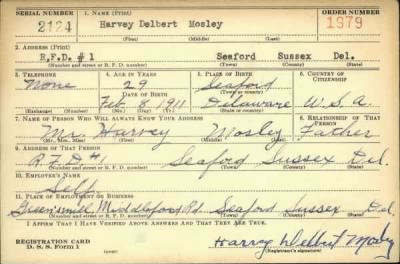 SERIAL NUMBER 1. NAME (Print) ORDER NUMBER
2124 Harvey Delbert Mosley 1979
(First) (Middle) (Last)
2. ADDRESS (Print)
R.F.D. #1 Seaford Sussex Del.
(Number and street or R. F. D. number) (Town) (County) (State)
3. TELEPHONE 4. AGE IN YEARS 5. PLACE OF BIRTH 6. COUNTRY OF CITIZENSHIP
None 29 Seaford
DATE OF BIRTH (Town or county)
Feb. 8, 1911 Delaware U.S.A.
(Exchange) (Number) (Mo.) (Day) (Yr.) (State or country)
7. NAME OF PERSON WHO WILL ALWAYS KNOW YOUR ADDRESS 8. RELATIONSHIP OF THAT PERSON
Mr. Harvey Mosley Father
(Mr., Mrs., Miss) (First) (Middle) (Last)
9. ADDRESS OF THAT PERSON
R.F.D #1 Seaford Sussex Del.
(Number and street or R. F. D. number) (Town) (County) (State)
10. EMPLOYER'S NAME
Self
11. PLACE OF EMPLOYMENT OR BUSINESS
Middleford Rd. Seaford Sussex Del
(Number and street or R. F. D. number) (Town) (County) (State)
I AFFIRM THAT I HAVE VERIFIED ABOVE ANSWERS AND THAT THEY ARE TRUE.
REGISTRATION CARD
D. S. S. Form 1
Harvey Delbert Mosley
(Registrant's signature)